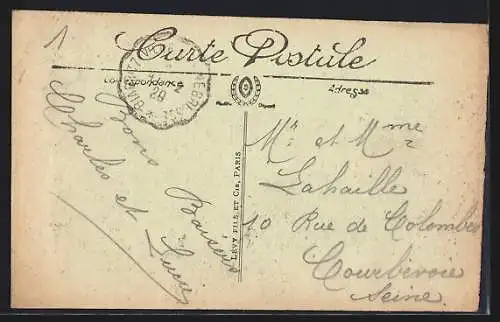 1
Carte Postale
Correspondance
Adresse
Bons
Baisers
Charles et
LÉVY FILS ET Cie, PARIS
Mr et Mme
Lahaille
10 Rue de Colombes
Courbevoie
Seine.